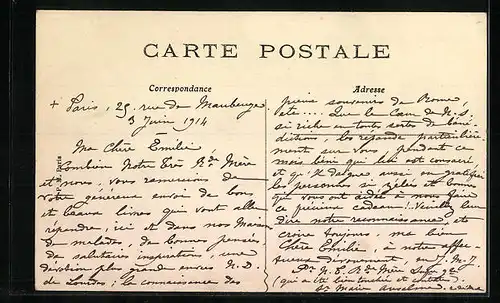 CARTE POSTALE
Correspondance
Adresse
+ Paris, 25 rue de Maubeuge
3 Juin 1914
Ma Chère Emilie,
Combien Notre Très Rde Mère
et nous, vous remercions de
votre généreux envoi de bons
et beaux livres qui vont aller
répandre, ici et dans nos Maisons
de malades, de bonnes pensées,
de salutaires inspirations, une
dévotion plus grande envers N. D.
de Lourdes; la connaissance des
pieux souvenirs de Rome,
etc.... Que le Cœur de N. S.
si riche en toutes sortes de béné-
dictions, les répande particulière-
ment sur vous, pendant ce
mois béni qui lui est consacré
et qu'il daigne aussi en gratifier
les personnes si zélées et bonnes
qui vous ont aidée à nous faire
ce précieux cadeau! Veuillez leur
dire notre reconnaissance, et
croire toujours ma bien
Chère Emilie, à notre affec-
tueux dévouement, en J. M. J.
Pr N. T. Rde Mère
(qui a été bien touchée et
Sr Marie Anselme